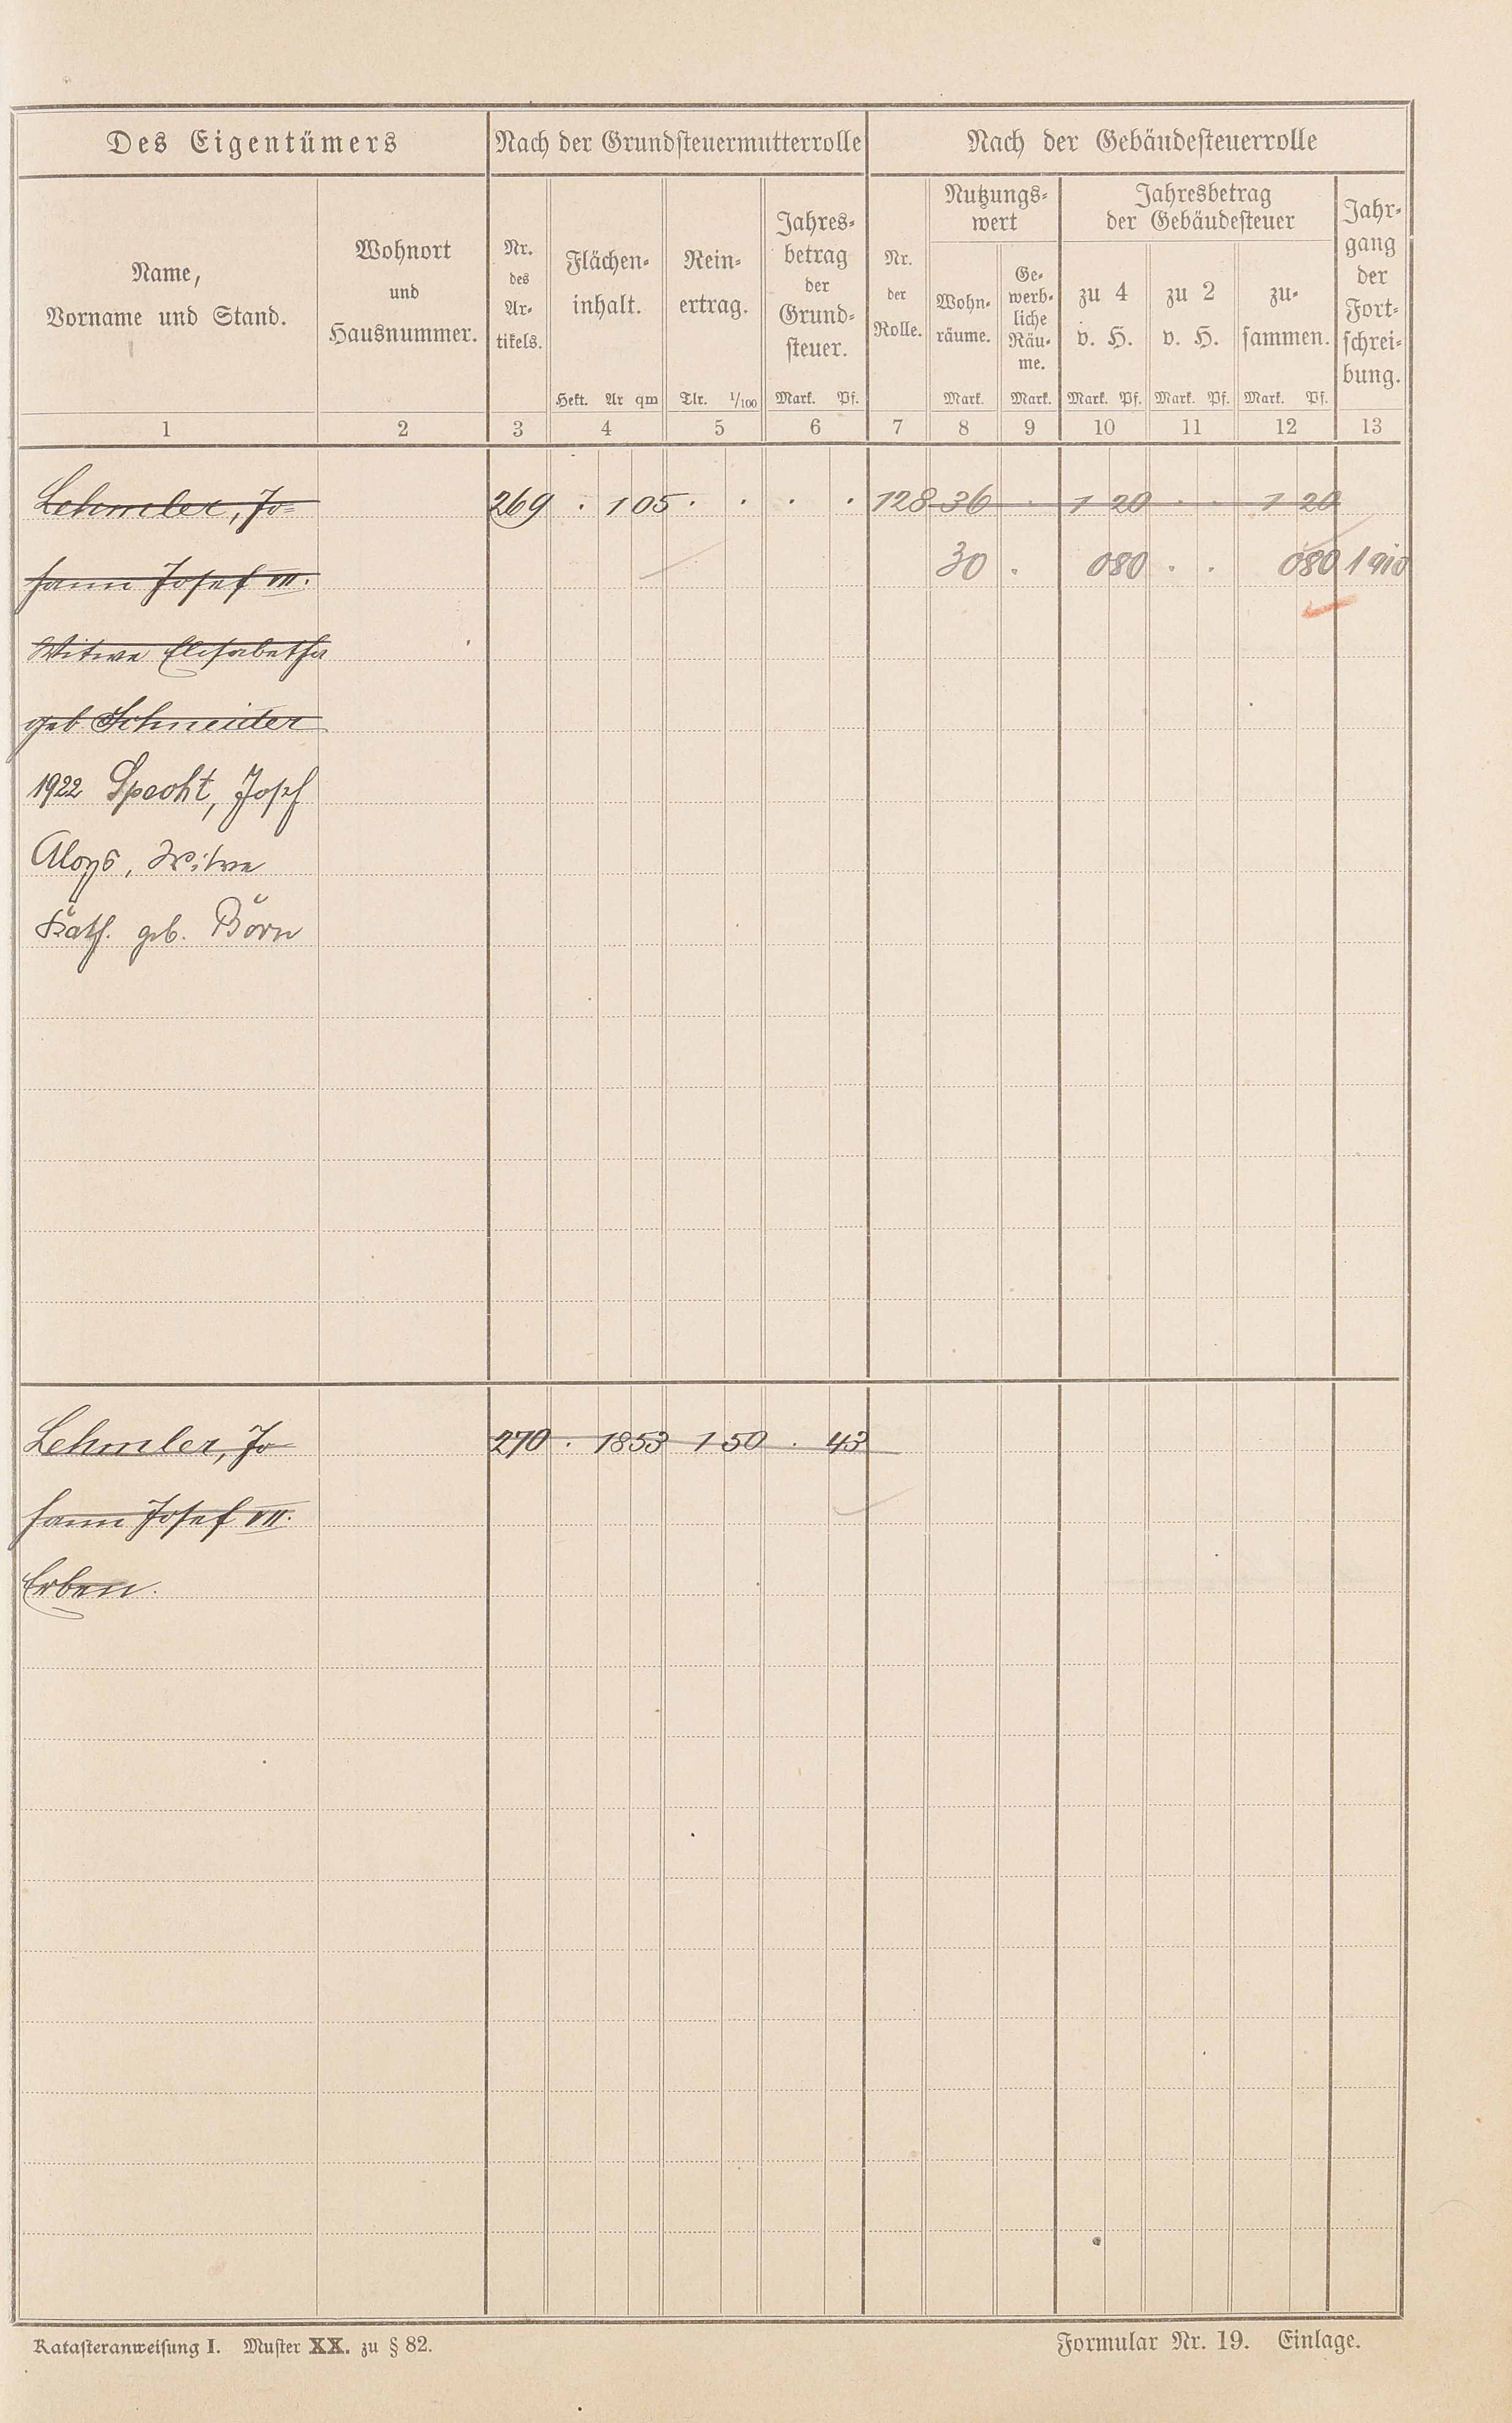 Des Eigentümers Nach der Grundsteuermutterrolle Nach der Gebäudesteuerrolle
Name,
Vorname und Stand.
Wohnort
und
Hausnummer.
Nr.
des
Ar-
tikels.
Flächen-
inhalt.
Hekt. Ar qm
Rein-
ertrag.
Tlr. 1/100
Jahres-
betrag
der
Grund-
steuer.
Mark. Pf.
Nr.
der
Rolle.
Nutzungs-
wert
Wohn-
räume.
Mark.
Ge-
werb-
liche
Räu-
me.
Mark.
Jahresbetrag
der Gebäudesteuer
zu 4
v. H.
Mark. Pf.
zu 2
v. H.
Mark. Pf.
zu-
sammen.
Mark. Pf.
Jahr-
gang
der
Fort-
schrei-
bung.
1 2 3 4 5 6 7 8 9 10 11 12 13
Lehmler, Jo- 269 . 1 05 . . . . 128 36 . 1 20 . . 1 20
hann Josef VII. 30 . 0 80 . . 0 80 1910
Witwe Elisabetha
geb Schneider
1922 Specht, Josef
Aloys, Witwe
Kath. geb. Börn
Lehmler, Jo 270 . 18 53 1 50 . 43
hann Josef VII.
Erben.
Katasteranweisung I. Muster XX. zu § 82. Formular Nr. 19. Einlage.